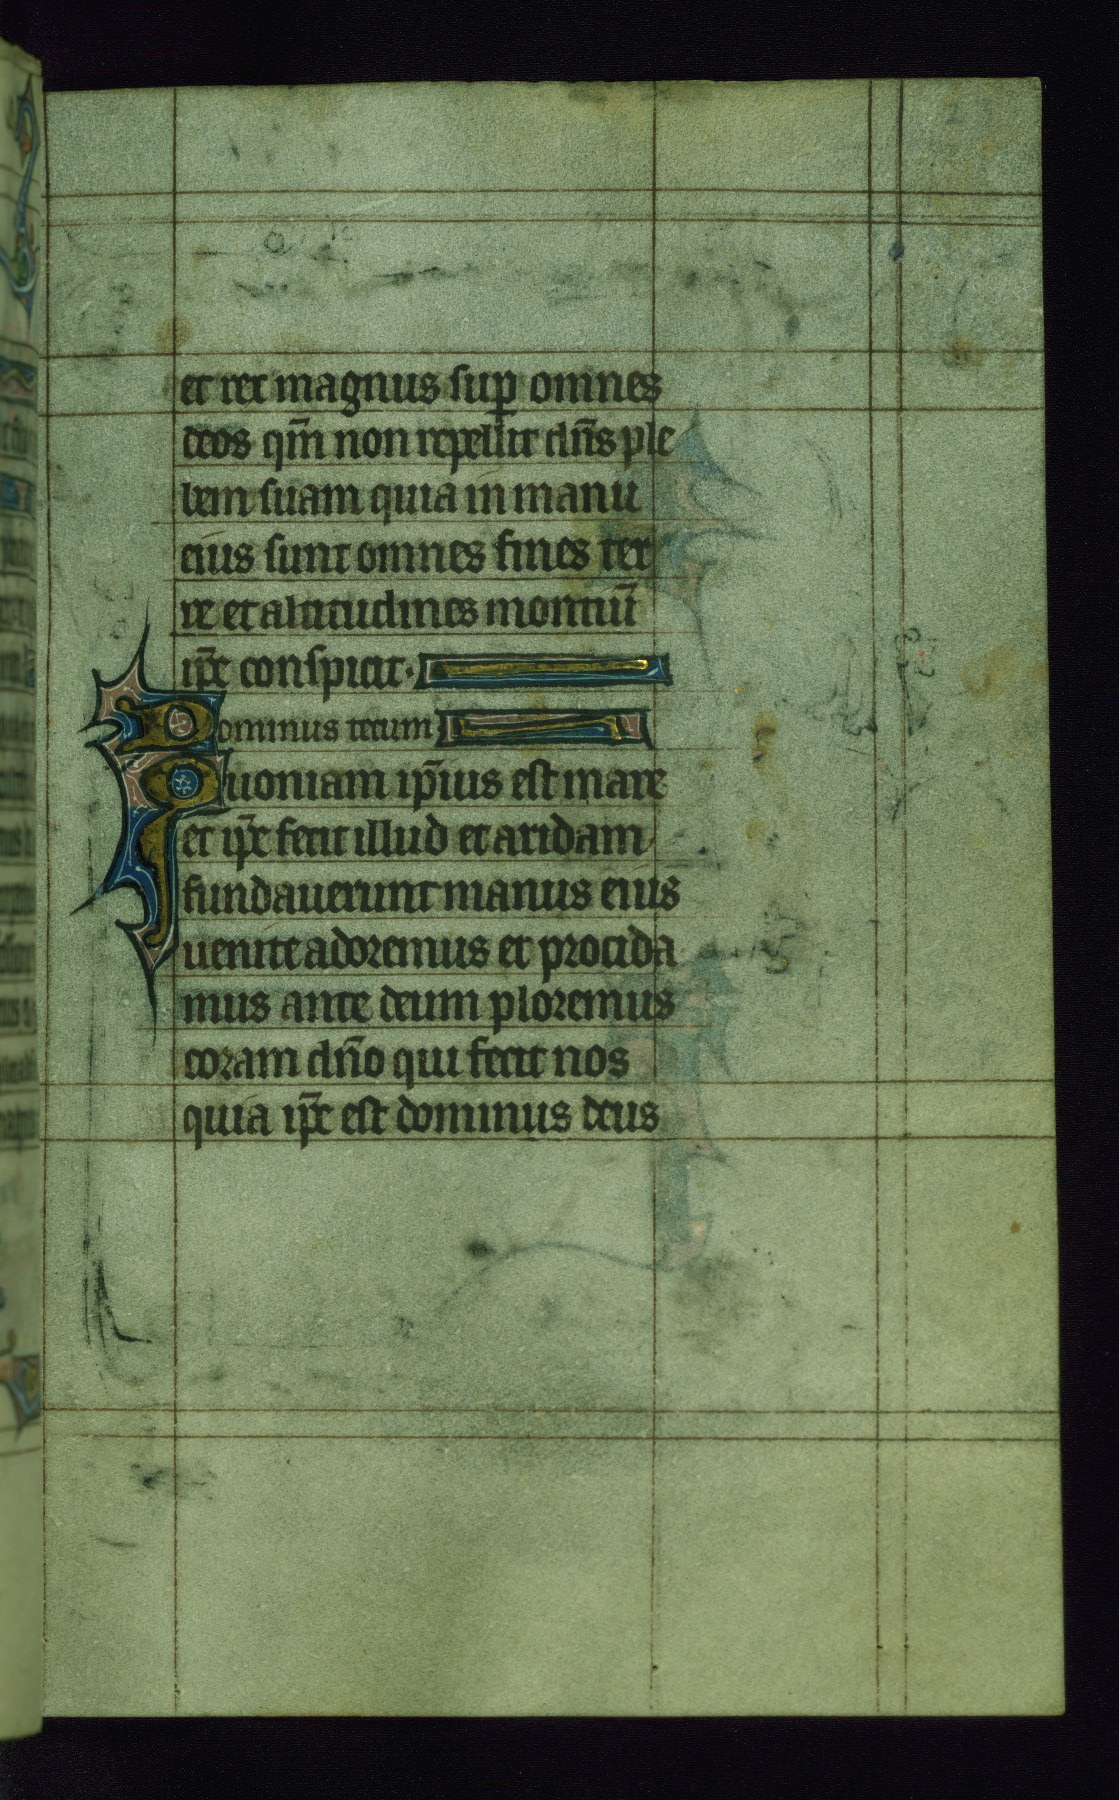 et rex magnus sup̱ omnes
deos qm̄ non repellit dn̄s ple
bem suam quia in manu
eius sunt omnes fines ter
re et altitudines montiū
ip̄e conspicit.
Dominus tecum
Quoniam ip̄ius est mare
et ip̄e fecit illud et aridam
fundauerunt manus eius
uenite adoremus et procida
mus ante deum ploremus
coram dn̄o qui fecit nos
quia ip̄e est dominus deus